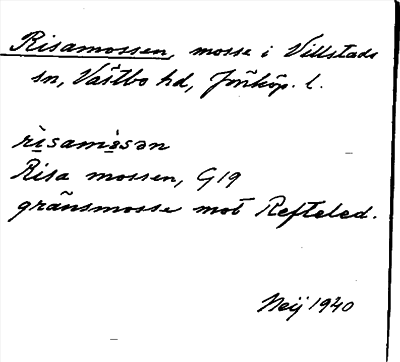 Risamossen, mosse i Villstads
sn, Västbo hd, Jönköp. l.
rìsamòsən
Risa mossen, G19
gränsmosse mot Refteled.
Neij 1940